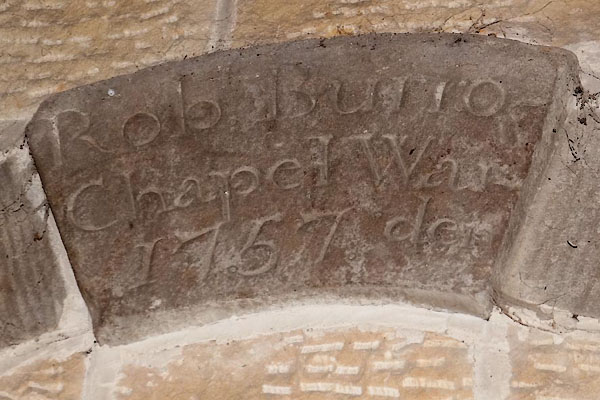 Rob Burrow
Chapel War
1757 der